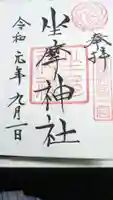 奉拝
坐摩神社
令和元年九月一日